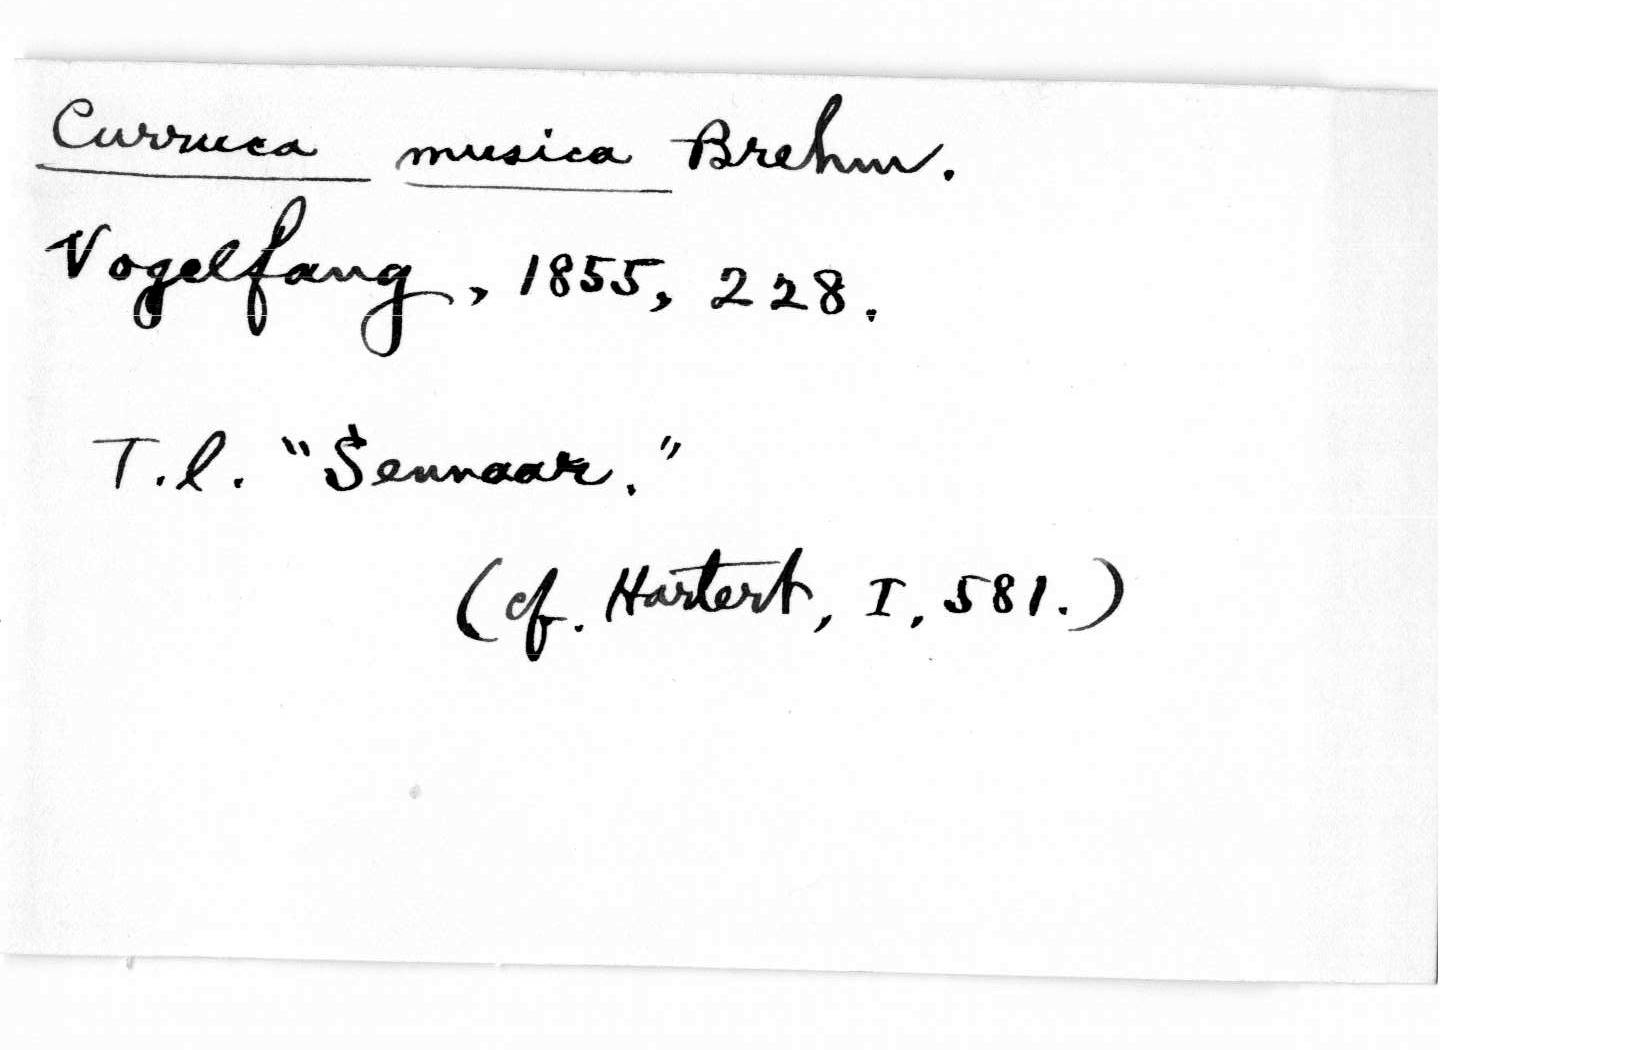 Curruca musica Brehm.
Vogelfang, 1855, 228.
T.l. "Sennaar."
(cf. Hartert, I, 581.)